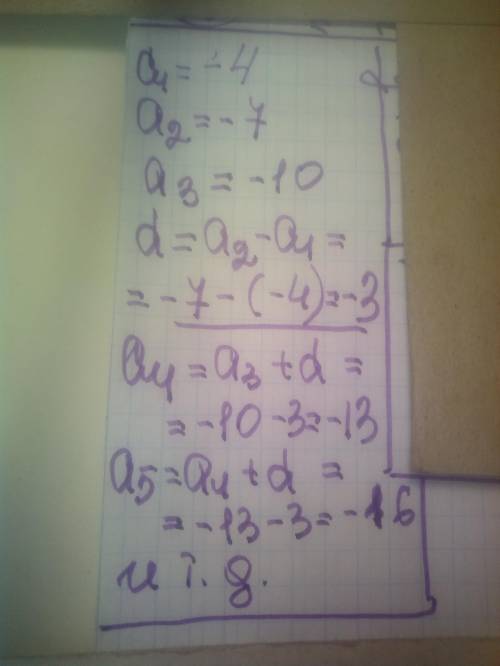 a₁ = -4
a₂ = -7
a₃ = -10
d = a₂ - a₁ =
= -7 - (-4) = -3
a₄ = a₃ + d =
= -10 - 3 = -13
a₅ = a₄ + d =
= -13 - 3 = -16
и т. д.